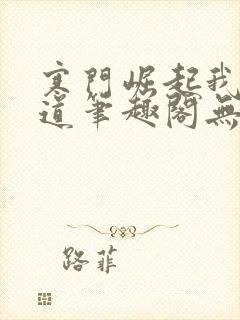 寒門崛起我
道筆趣閣無
路菲